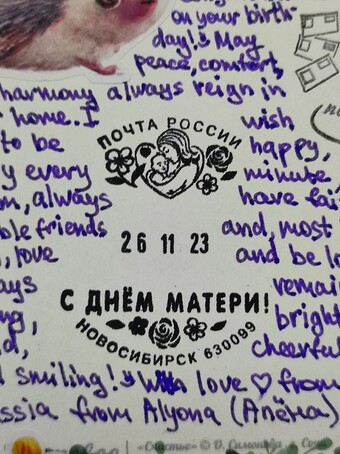 on your birth-
day! May
peace, comfort,
harmony always reign in
home. I wish
ПОЧТА РОССИИ
to be happy,
every minute
always have
friends and, most
love and be
26 11 23
remain
С ДНЁМ МАТЕРИ!
bright
НОВОСИБИРСК 630099
cheerful
smiling! With love ♡ from
from Alyona (Алёна)
«Счастье» © О.